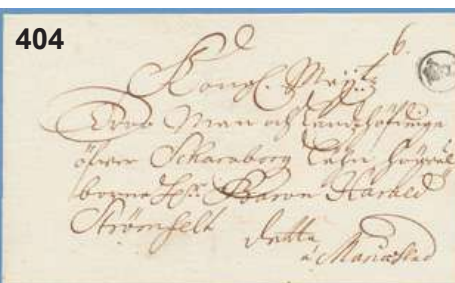 404
6.
Kongl. Maijtz
Troo Man och Landshöfdinge
öfwer Scharaborg Lähn Högwäl
borne H:r Baron Harald
Strömfelt
detta
á Mariæstad